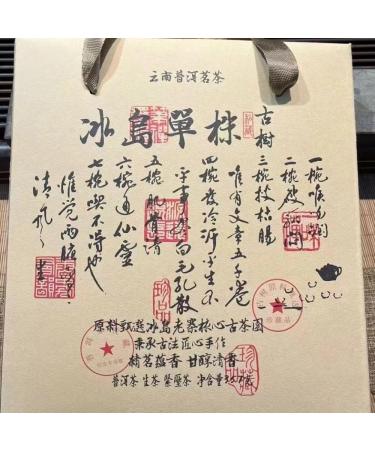 云南普洱茗茶
冰島單株
古樹
一椀喉吻潤
二椀破孤悶
三椀搜枯腸
唯有文章五千卷
四椀發汗平生不
平事盡向毛孔散
五椀肌骨清
六椀通仙靈
七椀喫不得也
惟覺兩腋
清風生
原料甄選冰島老寨核心古茶園
秉承古法匠心手作
精茗蘊香 甘醇清香
普洱茶 生茶 緊壓茶 净含量357克
珍藏